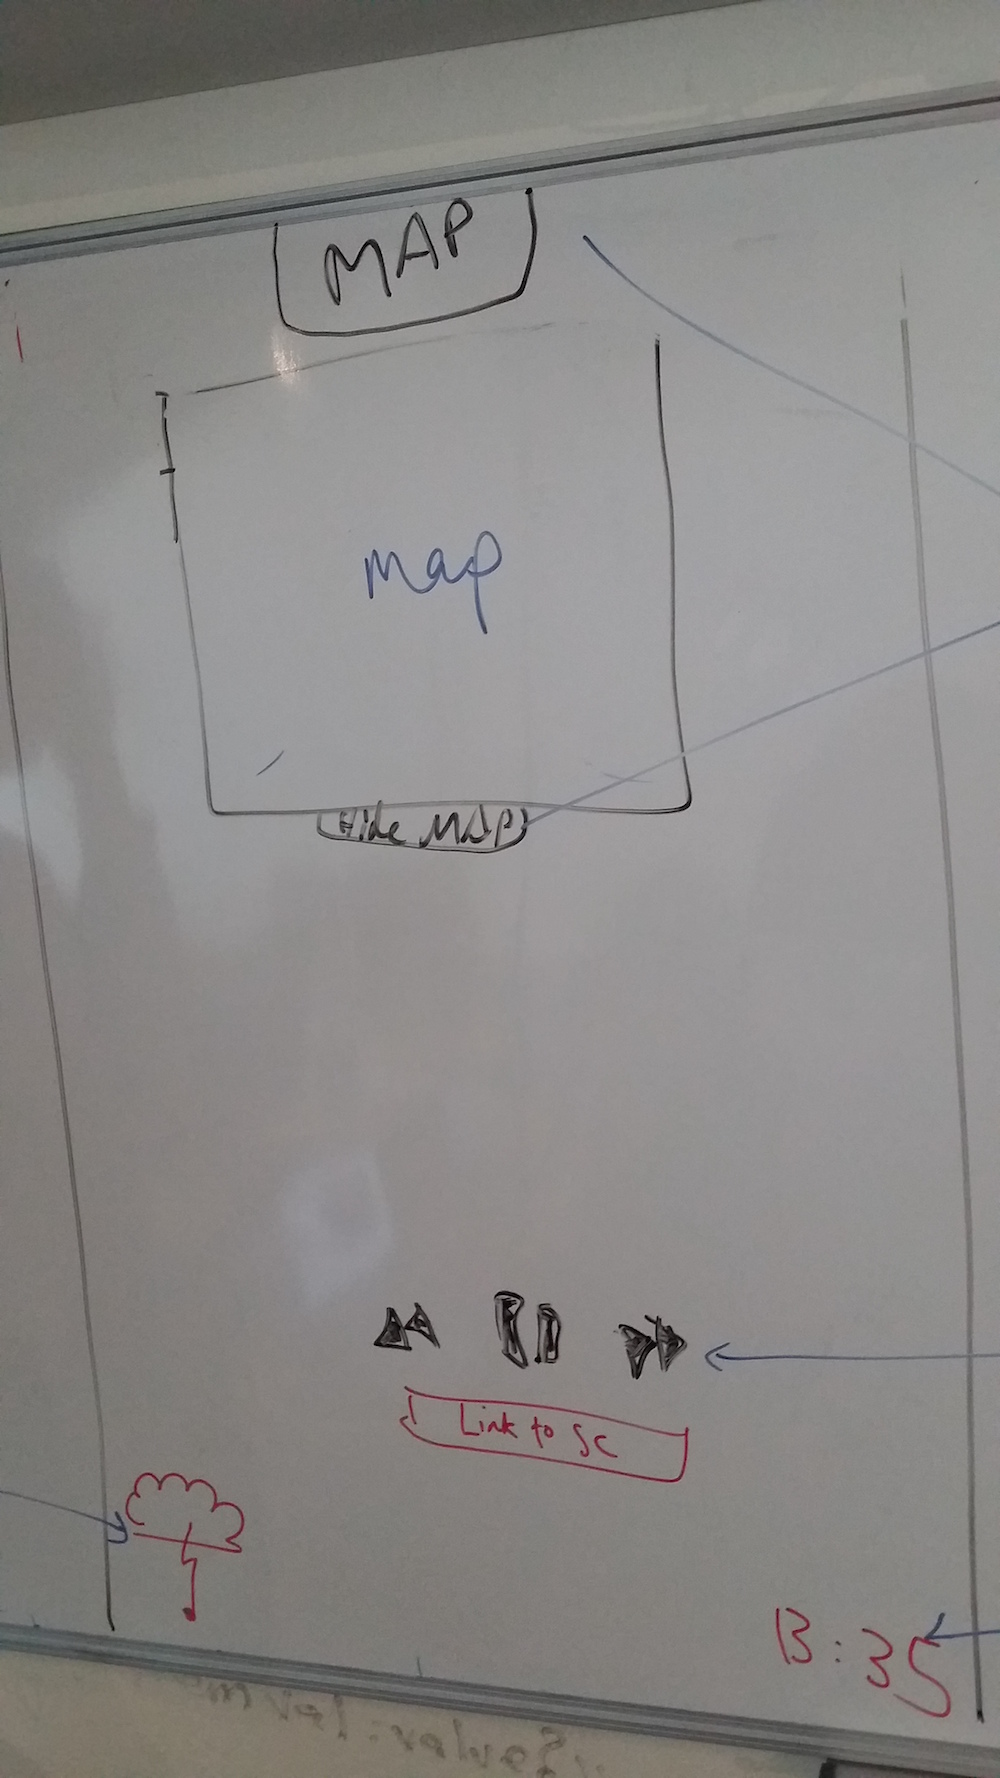 MAP
map
Hide MAP
Link to SC
13:35